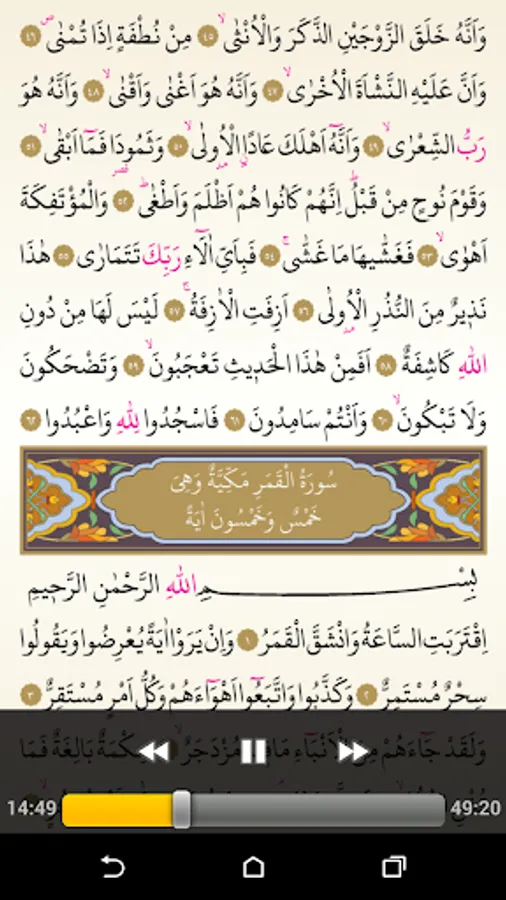 وَاَنَّهُ خَلَقَ الزَّوْجَيْنِ الذَّكَرَ وَالْاُنْثٰىۙ ﴿٤٥﴾ مِنْ نُطْفَةٍ اِذَا تُمْنٰىۖ ﴿٤٦﴾
وَاَنَّ عَلَيْهِ النَّشْاَةَ الْاُخْرٰىۙ ﴿٤٧﴾ وَاَنَّهُ هُوَ اَغْنٰى وَاَقْنٰىۙ ﴿٤٨﴾ وَاَنَّهُ هُوَ
رَبُّ الشِّعْرٰىۙ ﴿٤٩﴾ وَاَنَّهُٓ اَهْلَكَ عَادًاۨ الْاُو۫لٰىۙ ﴿٥٠﴾ وَثَمُودَا۬ فَمَٓا اَبْقٰىۙ ﴿٥١﴾
وَقَوْمَ نُوحٍ مِنْ قَبْلُۜ اِنَّهُمْ كَانُوا هُمْ اَظْلَمَ وَاَطْغٰىۜ ﴿٥٢﴾ وَالْمُؤْتَفِكَةَ
اَهْوٰىۙ ﴿٥٣﴾ فَغَشّٰيهَا مَا غَشّٰىۚ ﴿٥٤﴾ فَبِاَيِّ اٰلَٓاءِ رَبِّكَ تَتَمَارٰى ﴿٥٥﴾ هٰذَا
نَذٖيرٌ مِنَ النُّذُرِ الْاُو۫لٰى ﴿٥٦﴾ اَزِفَتِ الْاٰزِفَةُۚ ﴿٥٧﴾ لَيْسَ لَهَا مِنْ دُونِ
اللّٰهِ كَاشِفَةٌۜ ﴿٥٨﴾ اَفَمِنْ هٰذَا الْحَدٖيثِ تَعْجَبُونَۙ ﴿٥٩﴾ وَتَضْحَكُونَ
وَلَا تَبْكُونَۙ ﴿٦٠﴾ وَاَنْتُمْ سَامِدُونَ ﴿٦١﴾ فَاسْجُدُوا لِلّٰهِ وَاعْبُدُوا ﴿٦٢﴾
سُورَةُ الْقَمَرِ مَكِّيَّةٌ وَهِىَ
خَمْسٌ وَخَمْسُونَ اٰيَةً
بِسْمِ اللّٰهِ الرَّحْمٰنِ الرَّحٖيمِ
اِقْتَرَبَتِ السَّاعَةُ وَانْشَقَّ الْقَمَرُ ﴿١﴾ وَاِنْ يَرَوْا اٰيَةً يُعْرِضُوا وَيَقُولُوا
سِحْرٌ مُسْتَمِرٌّ ﴿٢﴾ وَكَذَّبُوا وَاتَّبَعُٓوا اَهْوَٓاءَهُمْ وَكُلُّ اَمْرٍ مُسْتَقِرٌّ ﴿٣﴾
وَلَقَدْ جَٓاءَهُمْ مِنَ الْاَنْبَٓاءِ مَا فٖيهِ مُزْدَجَرٌۙ حِكْمَةٌ بَالِغَةٌ فَمَا
14:49 49:20